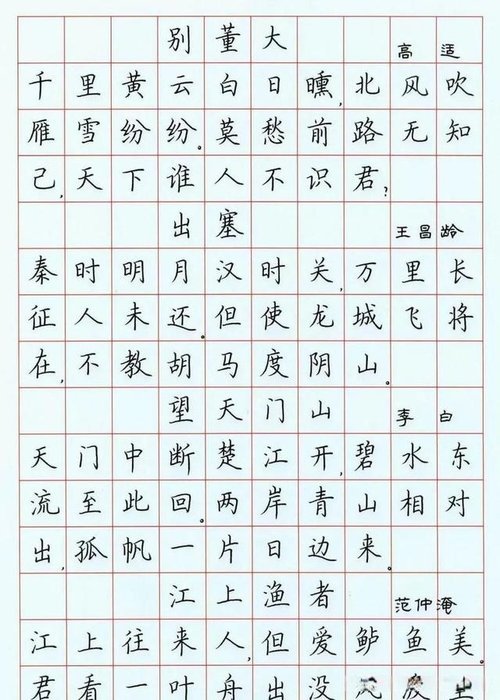 别董大 高适
千里黄云白日曛,北风吹
雁雪纷纷。莫愁前路无知
己,天下谁人不识君?
出塞 王昌龄
秦时明月汉时关,万里长
征人未还。但使龙城飞将
在,不教胡马度阴山。
望天门山 李白
天门中断楚江开,碧水东
流至此回。两岸青山相对
出,孤帆一片日边来。
江上渔者 范仲淹
江上往来人,但爱鲈鱼美。
君看一叶舟出没